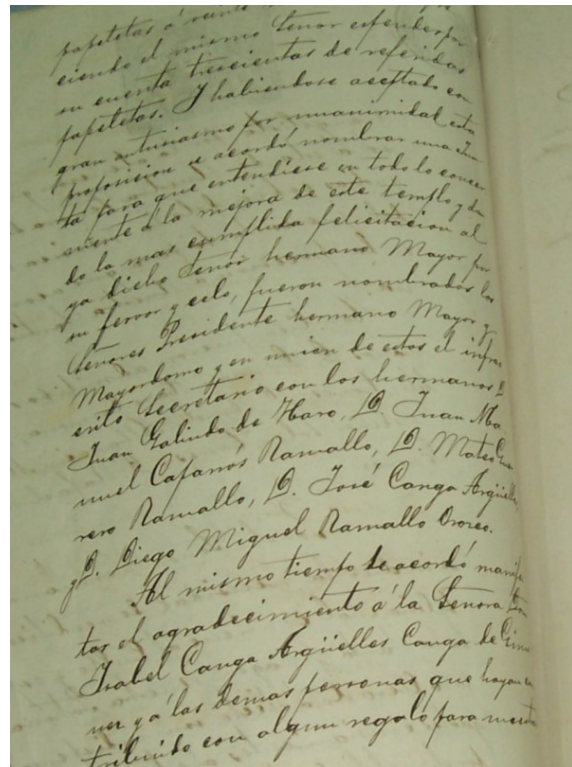 papeletas á veinte
ciendo el mismo Señor espender por
su cuenta trescientas de referidas
papeletas. Y habiendose aceptado con
gran entusiasmo por unanimidad esta
proposicion se acordó nombrar una Jun
ta para que entendiese en todo lo concer
niente á la mejora de este templo y dan
do la mas cumplida felicitacion al
ya dicho Señor hermano Mayor por
su fervor y celo, fueron nombrados los
Señores Presidente hermano Mayor y
Mayordomo y en union de estos el infras
crito Secretario con los hermanos D.
Juan Galindo de Haro, D. Juan Ma
nuel Caparrós Ramallo, D. Mateo Gue
rrero Ramallo, D. José Canga Argüelles,
y D. Diego Miguel Ramallo Orozco.
Al mismo tiempo se acordó manifes
tar el agradecimiento á la Señora Doña
Isabel Canga Argüelles Canga de Gime
nez y á las demas personas que hayan con
tribuido con algun regalo para